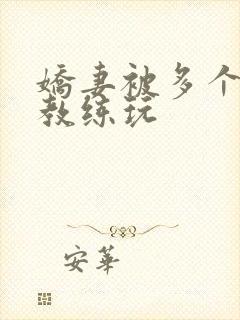 嬌妻被多个
教练玩
安華